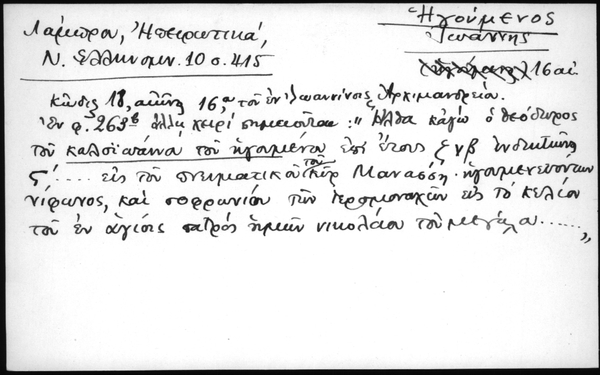 Λάμπρου, Ἠπειρωτικά,
Ν. Ἑλληνομν. 10 σ. 415
Ἡγούμενος
Ἰωάννης
16 αἰ.
Κῶδιξ 18, αἰῶνος 16ου τοῦ ἐν Ἰωαννίνοις Ἀρχιμανδρείου.
Ἐν φ. 263β ἄλλῃ χειρὶ σημειοῦται: "Ἦλθα κἀγὼ ὁ θεόδωρος
τοῦ καλοϊωάννα τοῦ ἡγουμένου ἐπὶ ἔτους ζνβ ἰνδικτιῶνος
ς´ ..... εἰς τὸν πνευματικὸν τὸν κῦρ Μανασσῆ. ἡγουμενεύοντων
νίφωνος, καὶ σοφρωνίου τῶν ἱερομονάχων εἰς τὸ κελίον
τοῦ ἐν ἁγίοις πατρός ἡμῶν νικολάου τοῦ μεγάλου ......"